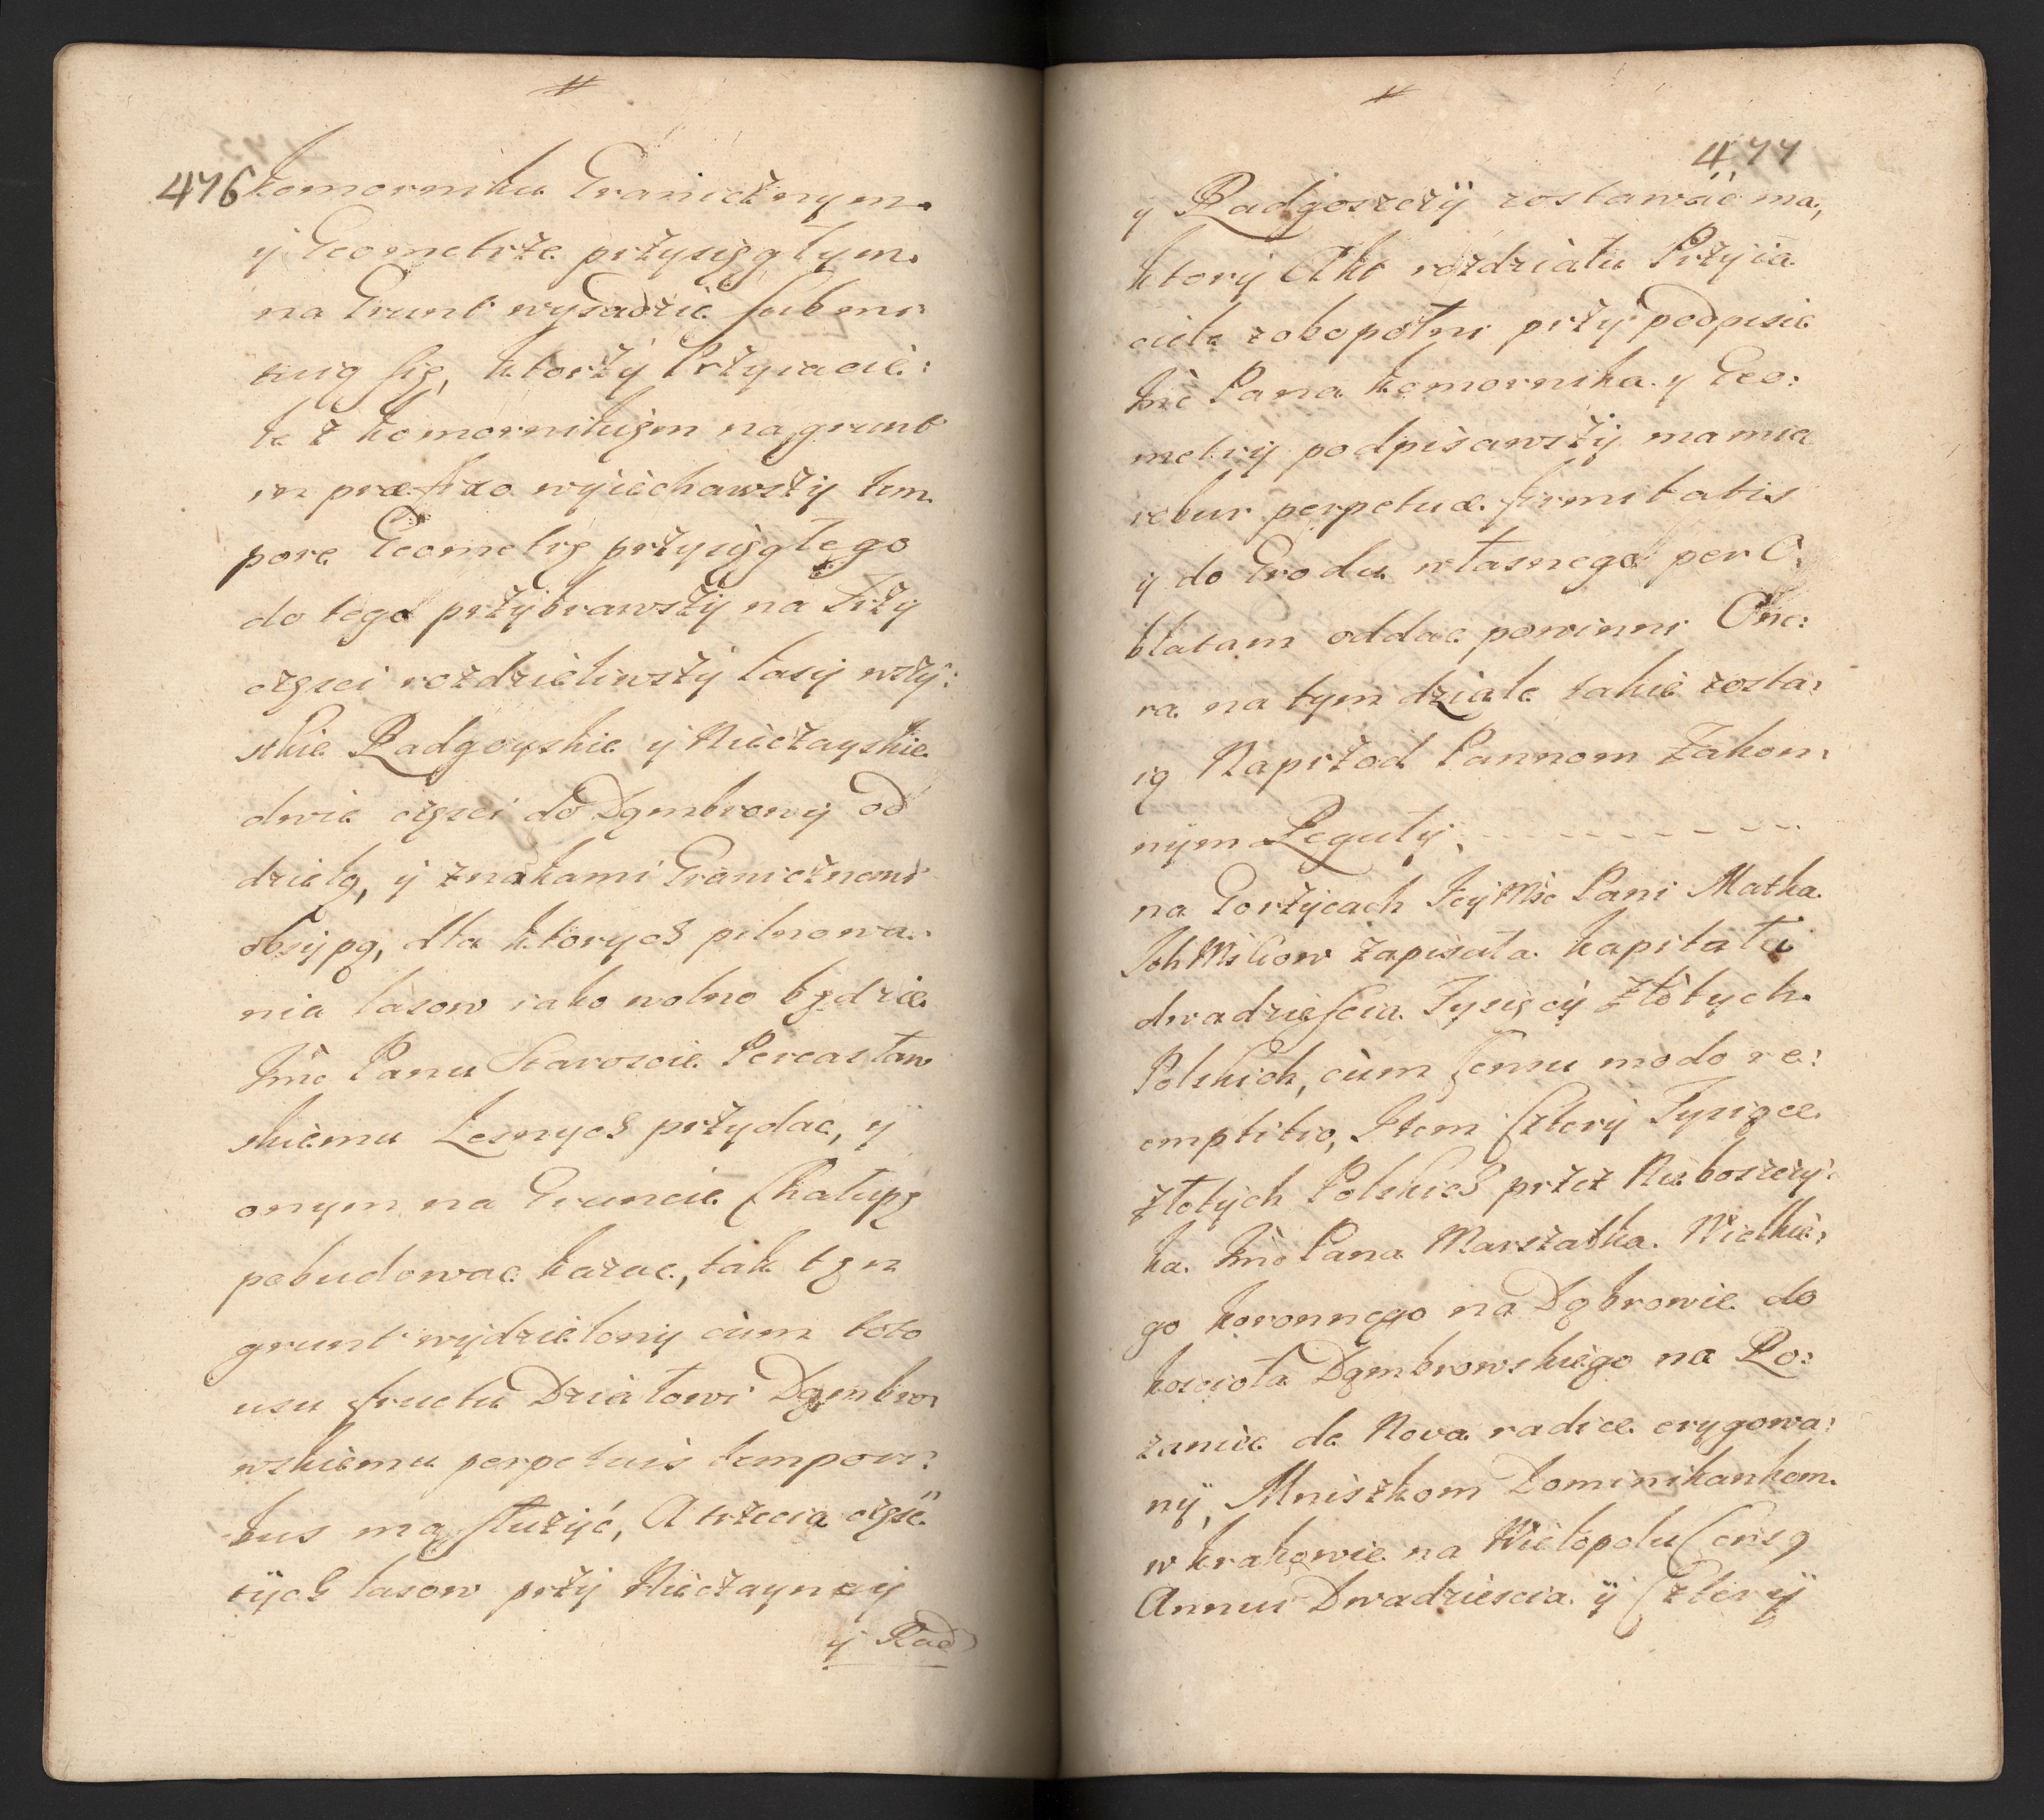 476
komorniku Granicznym
ÿ Geometrze przysięgłym
na Grunt wysadzić submi
tuią się, ktorzÿ Przyiacie:
le z komornikięm na grunt
in præfixo wÿiechawszÿ tem
pore Geometrę przysięgłego
do tego przÿbrawszÿ na Trzy
częsci rozdzieliwszÿ lasÿ wszÿ:
stkie Radgoyskie ÿ Nieczayskie
dwie częsci do Dąmbrowÿ od
dzielą, ÿ znakami Granicznemi
obsÿpą, dla ktorych pilnowa:
nia lasow iako wolno będzie
Jmć Panu Staroscie Pereasław
skiemu Lesnych przydac, ÿ
onym na Gruncie Chałupę
pobudowac kazac, tak tęn
grunt wÿdzielonÿ cùm toto
usu fructu Działowi Dąmbro:
wskiemu perpetuis tempori:
bus ma służÿć, A trzecia częśc
tÿch lasow przÿ Nieczayneÿ
ÿ Rad
477
ÿ Radgoszczÿ zostawać ma,
ktorÿ Akt rozdziału Przÿia
ciele zobopolni przÿ podpisie
Jmć Pana komornika y Geo:
metrÿ podpisawszÿ ma mieć
robur perpetuæ firmitatis
ÿ do Grodu własnego per O:
blatam oddac powinni One:
ra na tym dziale takie zosta:
ią Naprzod Pannom Zakon:
nÿm Regułÿ. - - - - - - - - -
na Gorzÿcach Jeÿ Mśc Pani Matka
Ich Mściow zapisała kapitału
dwadziescia Tysięcÿ Złotych
Polskich, cùm censu modo re:
emptitio, Item Czterÿ Tysiące
złotÿch Polskich przez Nieboszczÿ:
ka Jmć Pana Marszałka Wielkie:
go koronnego na Dąbrowie do
kosciola Dąmbrowskiego na Ro:
zaniec de Nova radice erygowa:
nÿ, Mniszkom Dominikankom
w krakowie na Wielopolu Censq
Annui Dwadziescia ÿ Czterÿ